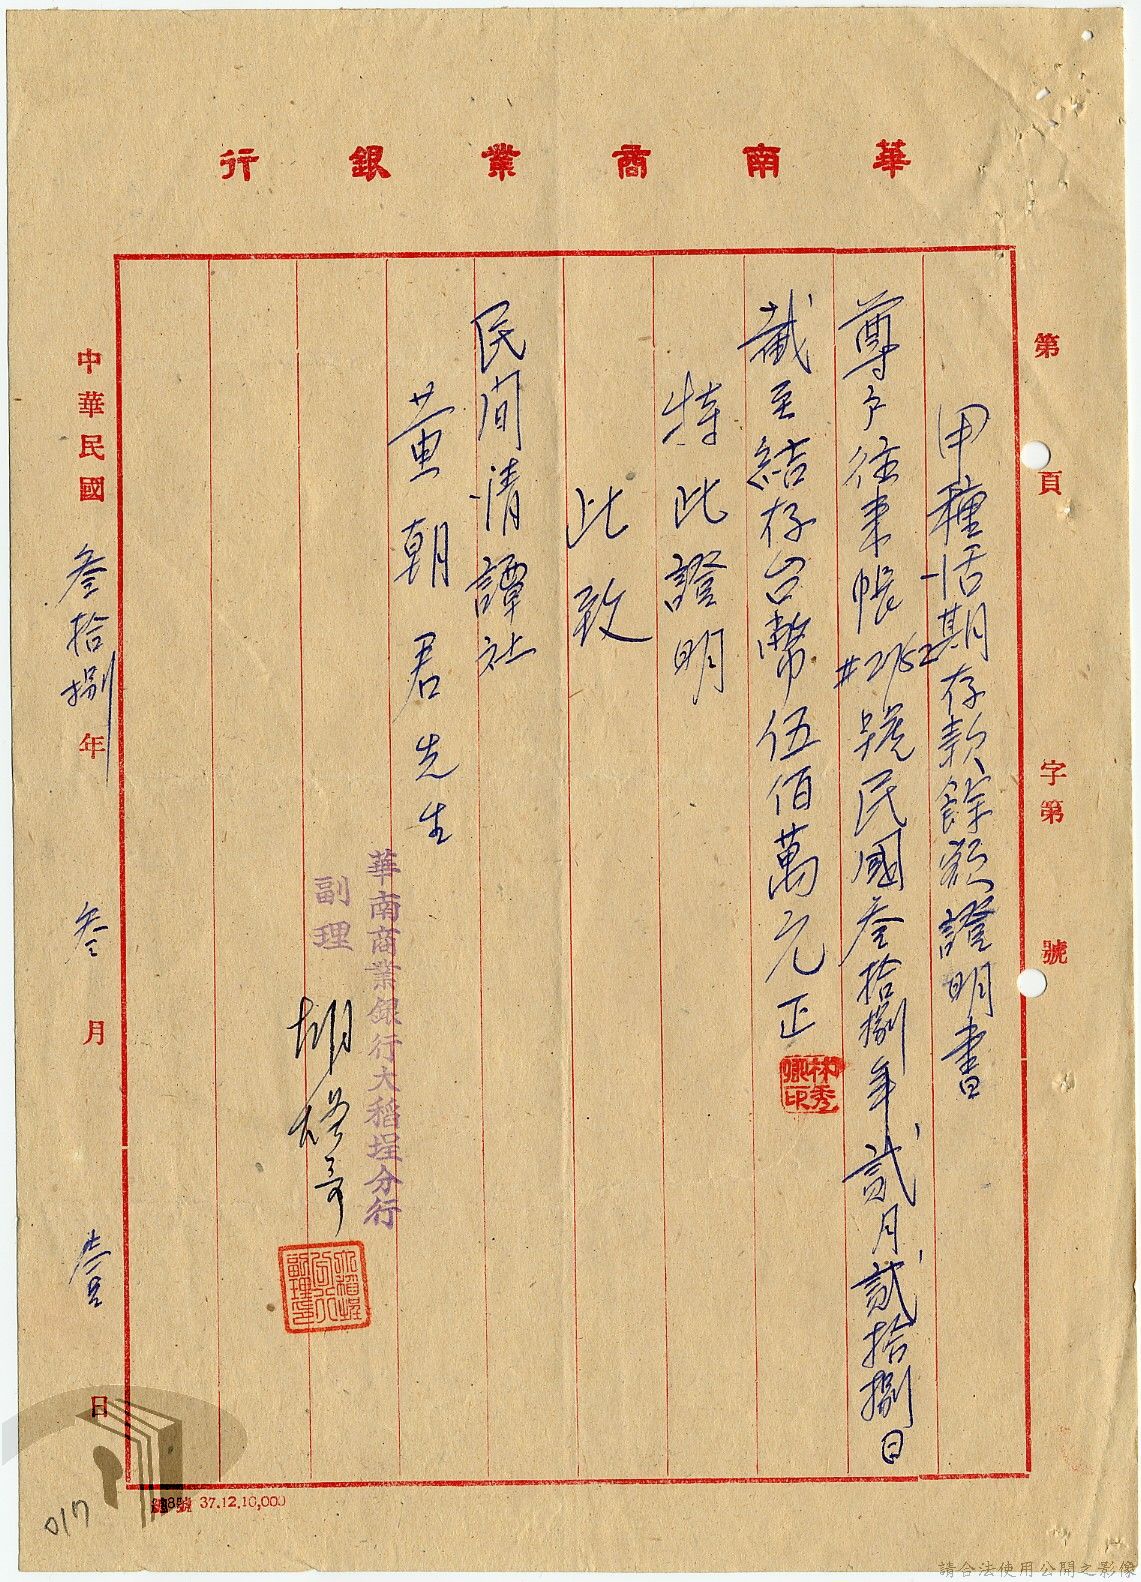 華南商業銀行
第 頁 字第 號
甲種活期存款餘額證明書
尊戶往來帳#2752號民國叁拾捌年貳月貳拾捌日
截至結存台幣伍佰萬元正
林秀卿印
特此證明
此致
民間清譚社
黃朝君先生
華南商業銀行大稻埕分行
副理
大稻埕分行副理印
中華民國叁拾捌年叁月壹日
37.12.10,000
017
請合法使用公開之影像